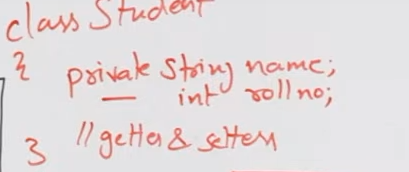 class Student
{
private String name;
int rollno;
// getter & setters
}